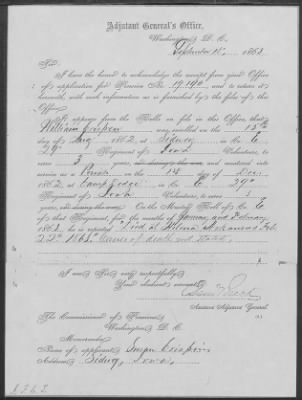 Adjutant General's Office,
Washington D. C.
September 15, 1863.
Sir:
I have the honor to acknowledge the receipt from your Office
of application for Pension No. 19.190, and to return it
herewith, with such information as is furnished by the files of this
Office.
It appears from the Rolls on file in this Office, that
William Crispin was enrolled on the 15th
day of Aug 1862, at Sidney in Co. E
29th Regiment of Iowa Volunteers, to
serve 3 years, or during the war, and mustered into
service as a Private on the 1st day of Dec.
1862, at Camp Dodge in Co. E, 29th
Regiment of Iowa Volunteers, to serve 3
years, or during the war. On the Muster Roll of Co. E
of that Regiment, for the months of January and February
1863, he is reported "Died at Helena Arkansas Feb.
1863." Cause of death not stated.
I am Sir, very respectfully,
Your obedient servant,
Assistant Adjutant General
The Commissioner of Pensions
Washington D. C.
Memoranda:
Name of applicant Crispin
Address Sidney, Iowa.